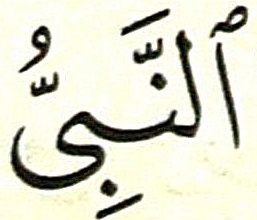 ٱلنَّبِىُّ